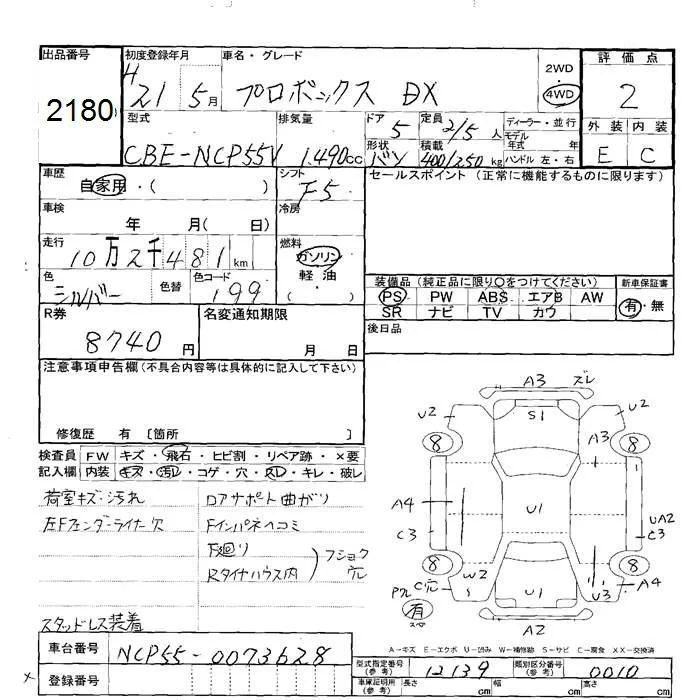 出品番号 初度登録年月 車名・グレード 2WD 評価点
2180 H21 5月 プロボックス DX 4WD 2
型式 排気量 ドア 定員 ディーラー・並行 外装 内装
CBE-NCP55V 1.490cc 5 2/5人 モデル年式 年 E C
形状 バン 積載 400/250kg ハンドル 左・右
車歴 自家用・( ) シフト F5 セールスポイント (正常に機能するものに限ります)
車検 年 月( 日) 冷房
走行 10万2千481km 燃料 ガソリン
軽油
( )
色 シルバー 色替 色コード 199
装備品 (純正品に限り○をつけてください) 新車保証書
PS PW ABS エアB AW 有・無
SR ナビ TV カワ
R券 8740円 名変通知期限 月 日 後日品
注意事項申告欄(不具合内容等は具体的に記入して下さい)
修復歴 有 〔箇所 〕
検査員 FW キズ・飛石・ヒビ割・リペア跡・×要
記入欄 内装 キズ・汚れ・コゲ・穴・スレ・キレ・破レ
荷室キズ・汚れ ロアサポート曲がり
左Fフェンダーライナー欠 Fインパネヘコミ
下廻り
Rタイヤハウス内 フショク穴
スタッドレス装着
A3 ズレ
U2 S1 U2
8 8
A3
A4 U1 UA2
C3 C3
8 8
W2 S U1 U3 A4
C穴
有 スペア
A2
A-キズ E-エクボ U-凹み W-補修跡 S-サビ C-腐食 XX-交換済
車台番号 NCP55-0073628
型式指定番号(参考) 12139 類別区分番号(参考) 0010
× 登録番号 車庫証明用(参考) 長さ cm 幅 cm 高さ cm